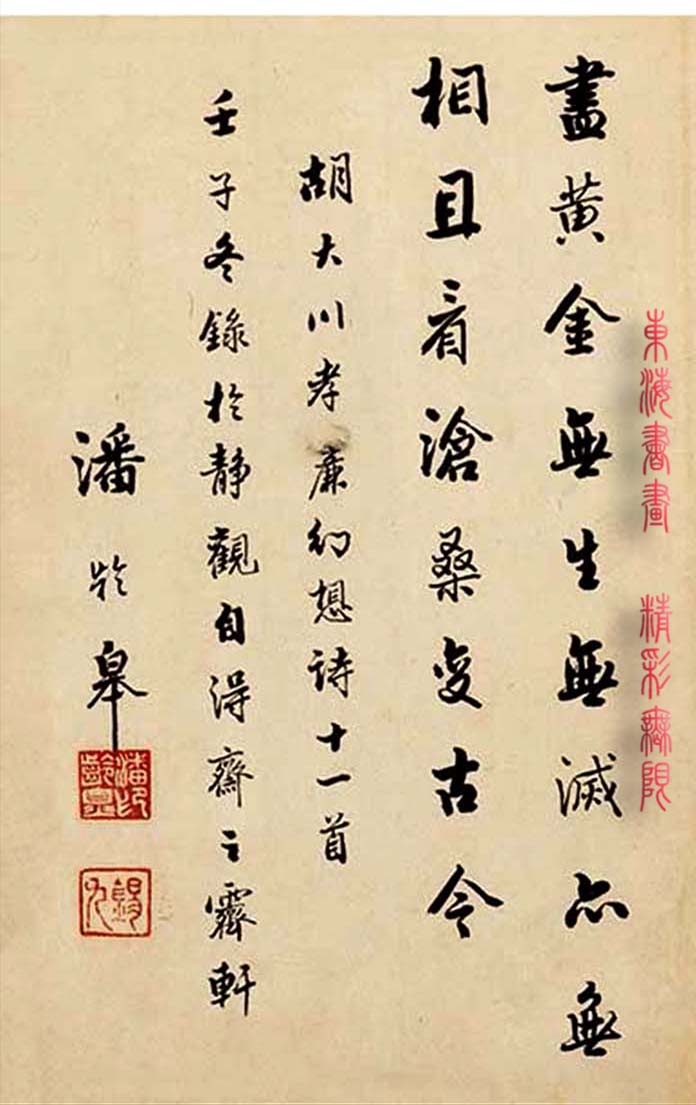 東海書畫 精彩無限
盡黃金無生無滅亦無
相且看滄桑变古今
胡大川孝廉幻想詩十一首
壬子冬錄於静觀自得齋之霽軒
潘齡皋
潘印齡皋
錫九